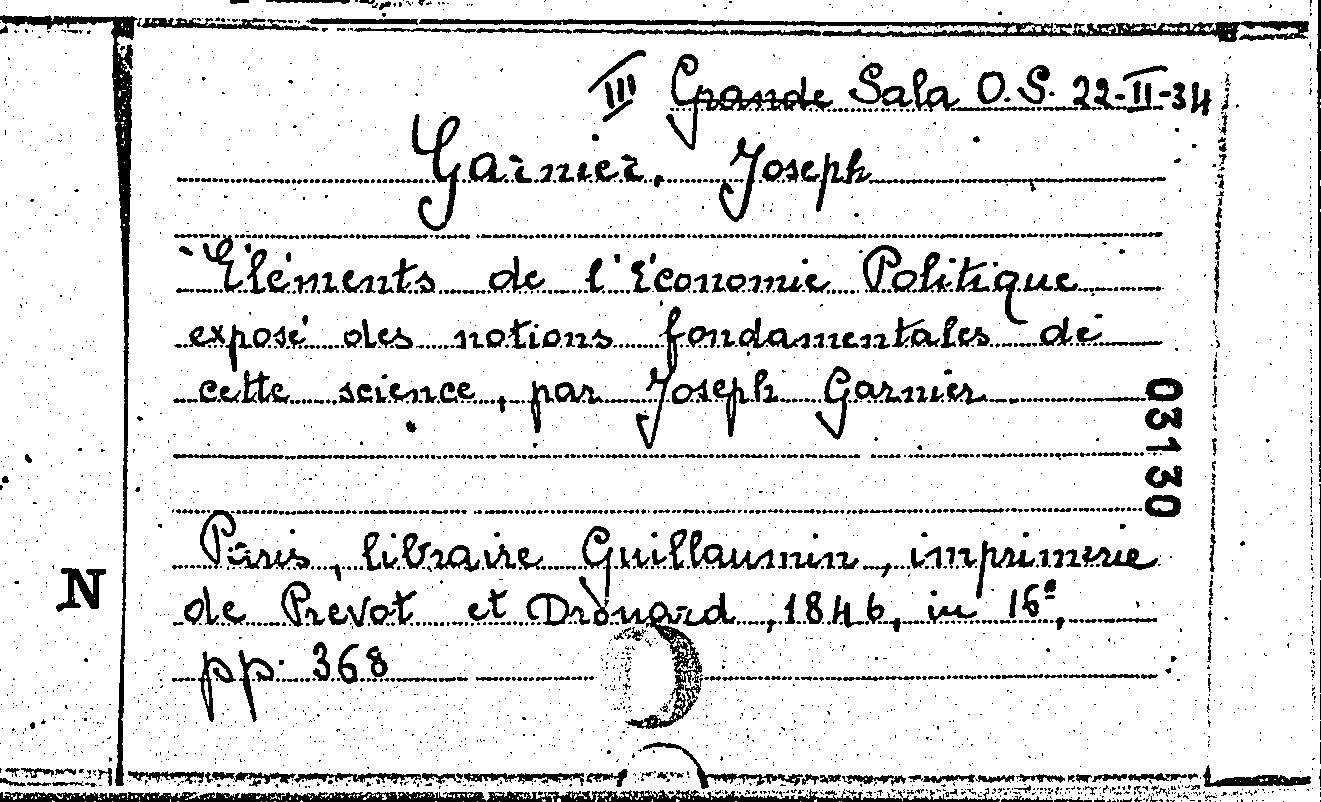 III Grande Sala O.S. 22-II-34
Garnier, Joseph
Eléments de l'Économie Politique
exposé des notions fondamentales de
cette science, par Joseph Garnier
03130
Paris, libraire Guillaumin, imprimerie
N
de Prevot et Drouard, 1846, in 16º,
pp. 368